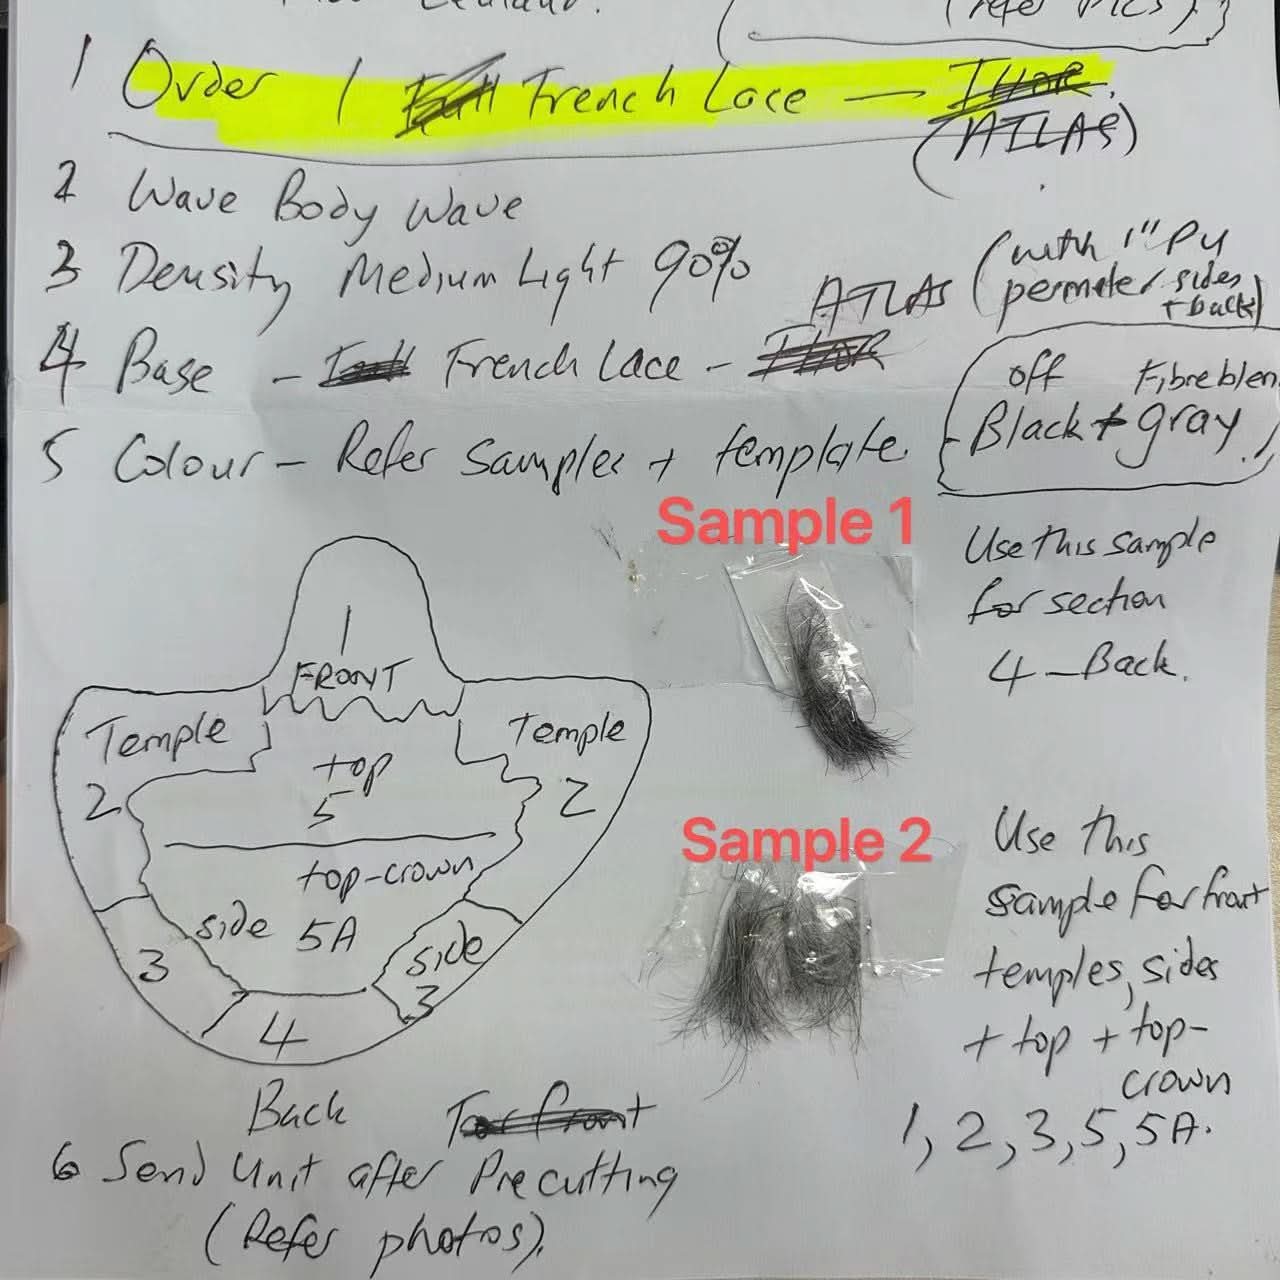 (refer PICS)
1 Order 1 French Lace —
(ATLAS)
2 Wave Body Wave
3 Density Medium Light 90%
(with 1" PU
permeter sides
+ back)
ATLAS
4 Base - French Lace -
5 Colour - Refer Samples + template
off Fibre blen
Black + gray
Sample 1
Use this sample
for section
4 - Back.
1
FRONT
Temple
Temple
2
top
5
2
top-crown
side 5A
side
3
3
4
Back
Sample 2
Use this
sample for front
temples, sides
+ top + top-
crown
1, 2, 3, 5, 5A.
6 Send Unit after Precutting
(Refer photos).